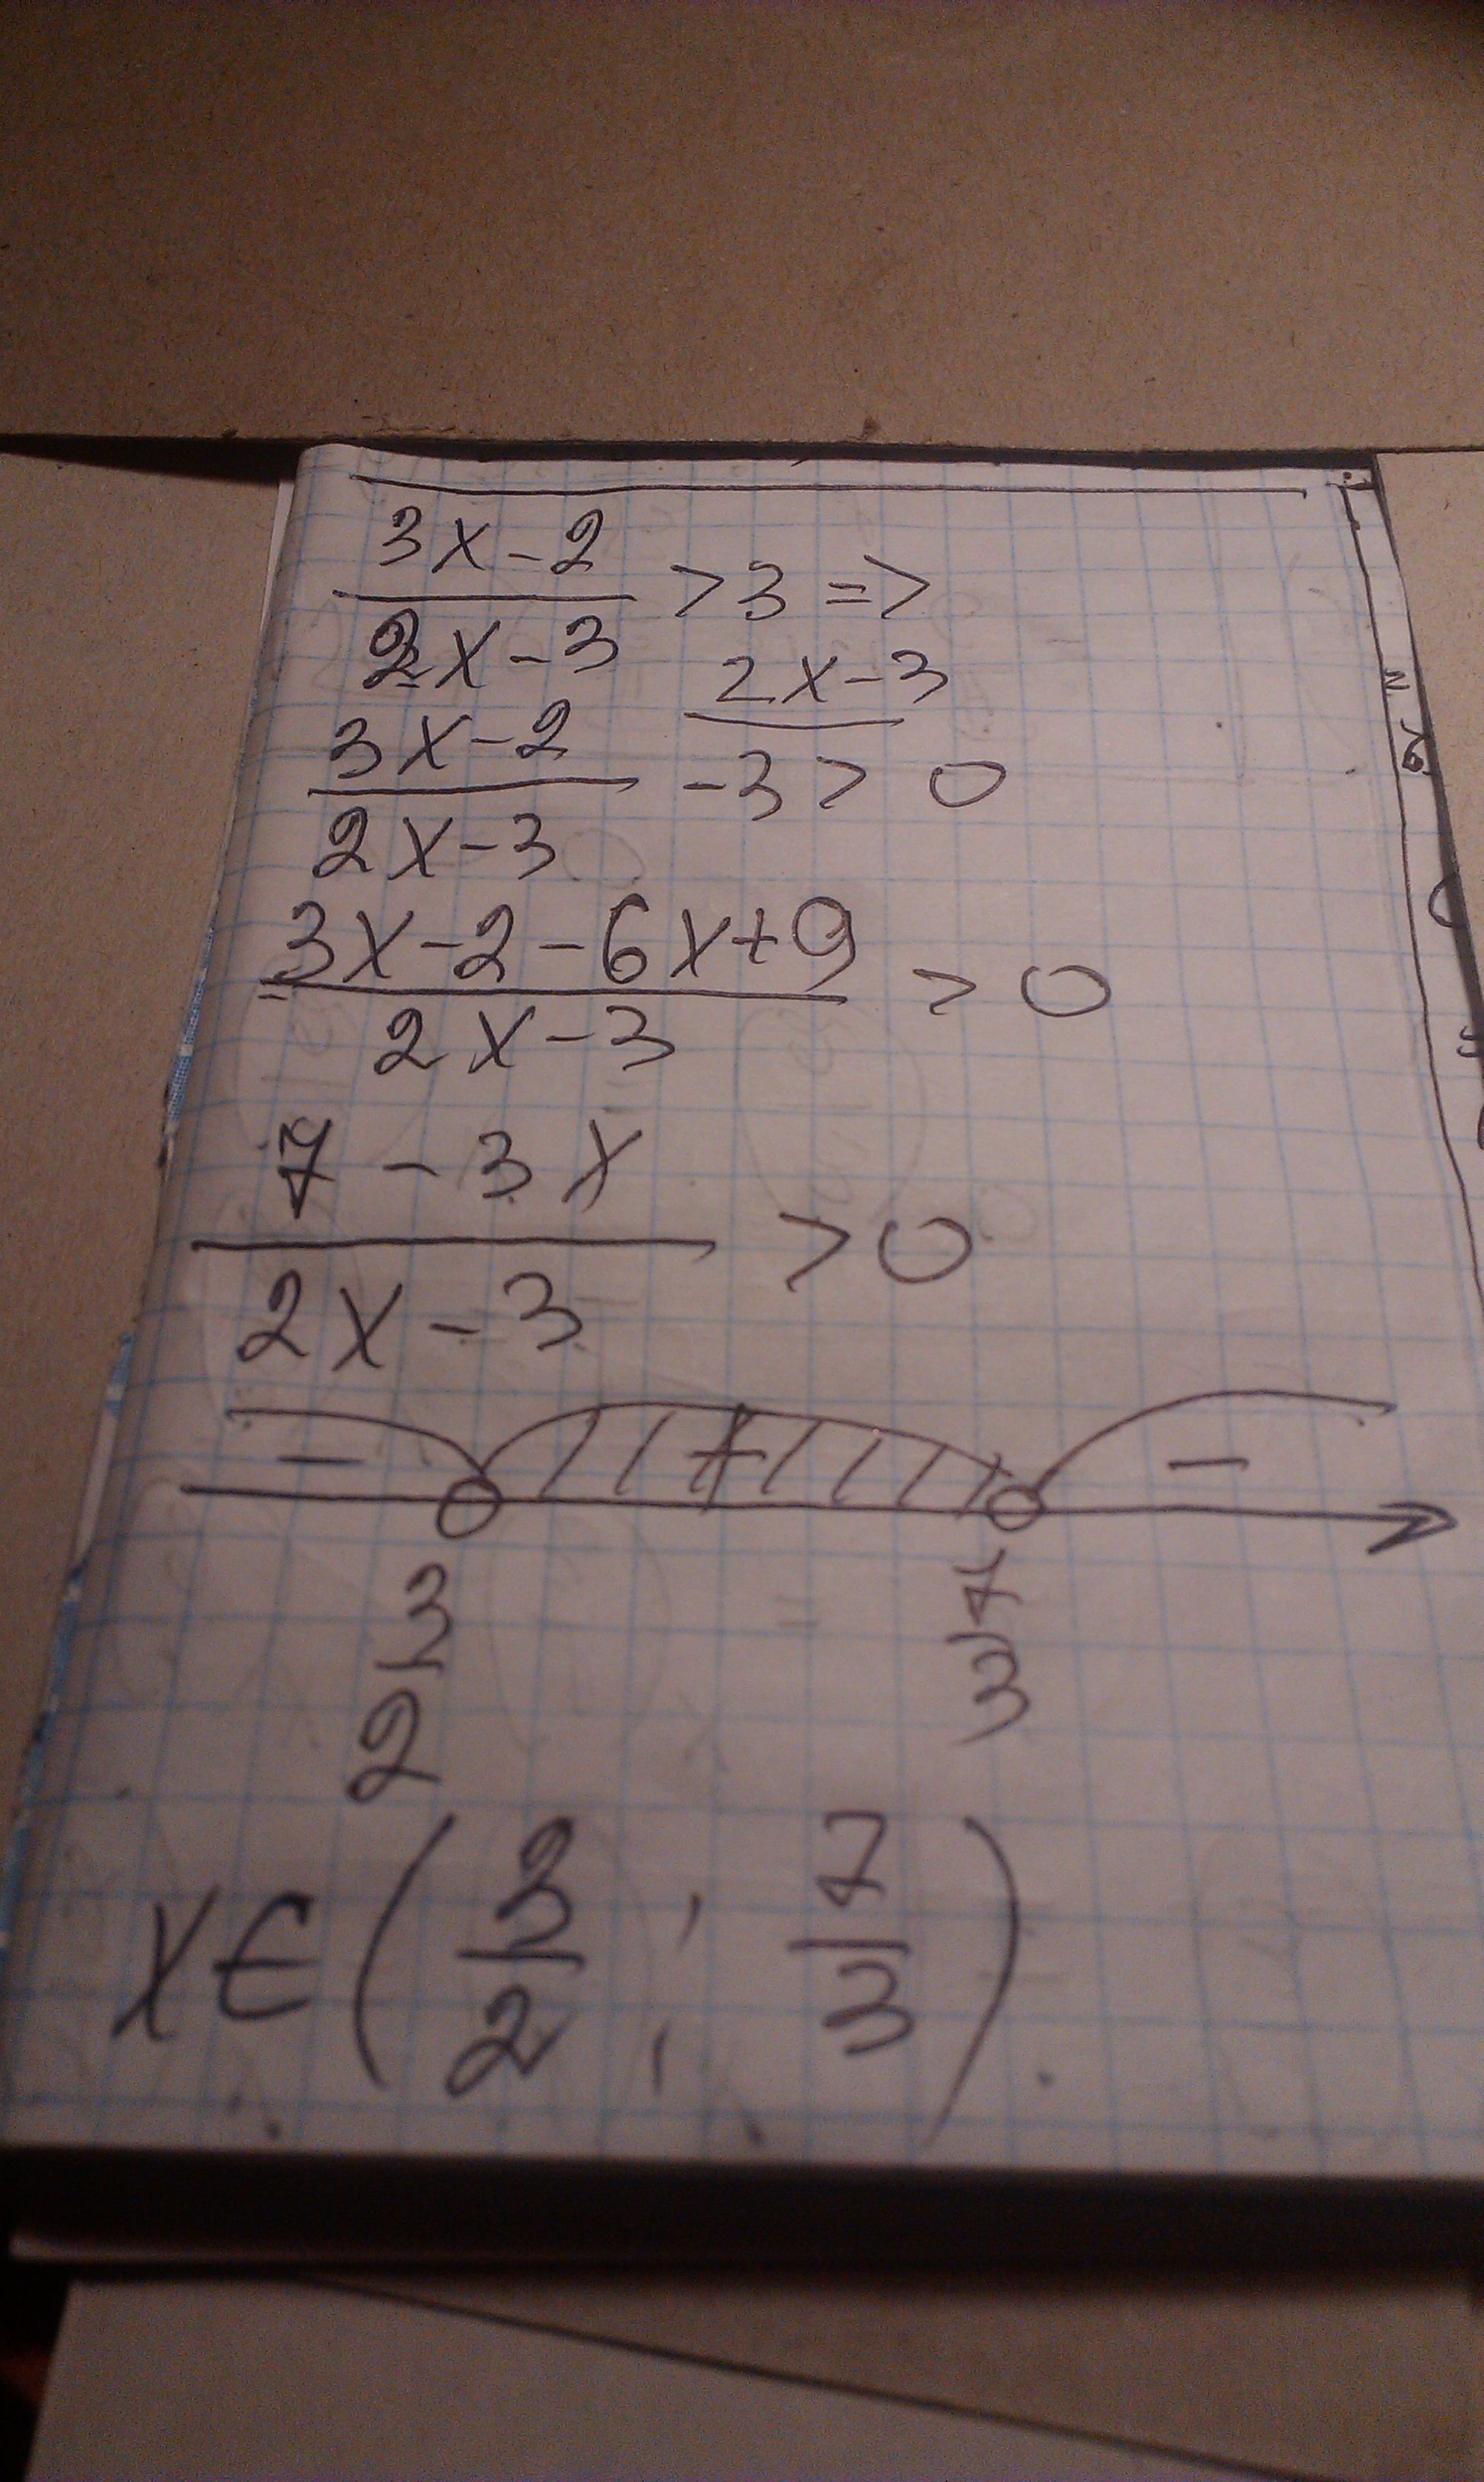 3x-2
——— >3 =>
2x-3
3x-2 2x-3
——— -3 > 0
2x-3
3x-2-6x+9
————— > 0
2x-3
7-3x
——— >0
2x-3
- + -
3/2 7/3
x∈(3/2; 7/3).